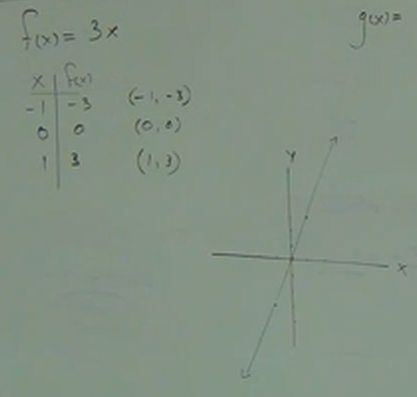 f(x) = 3x
g(x) =
x f(x)
-1 -3 (-1, -3)
0 0 (0, 0)
1 3 (1, 3)
Y
X